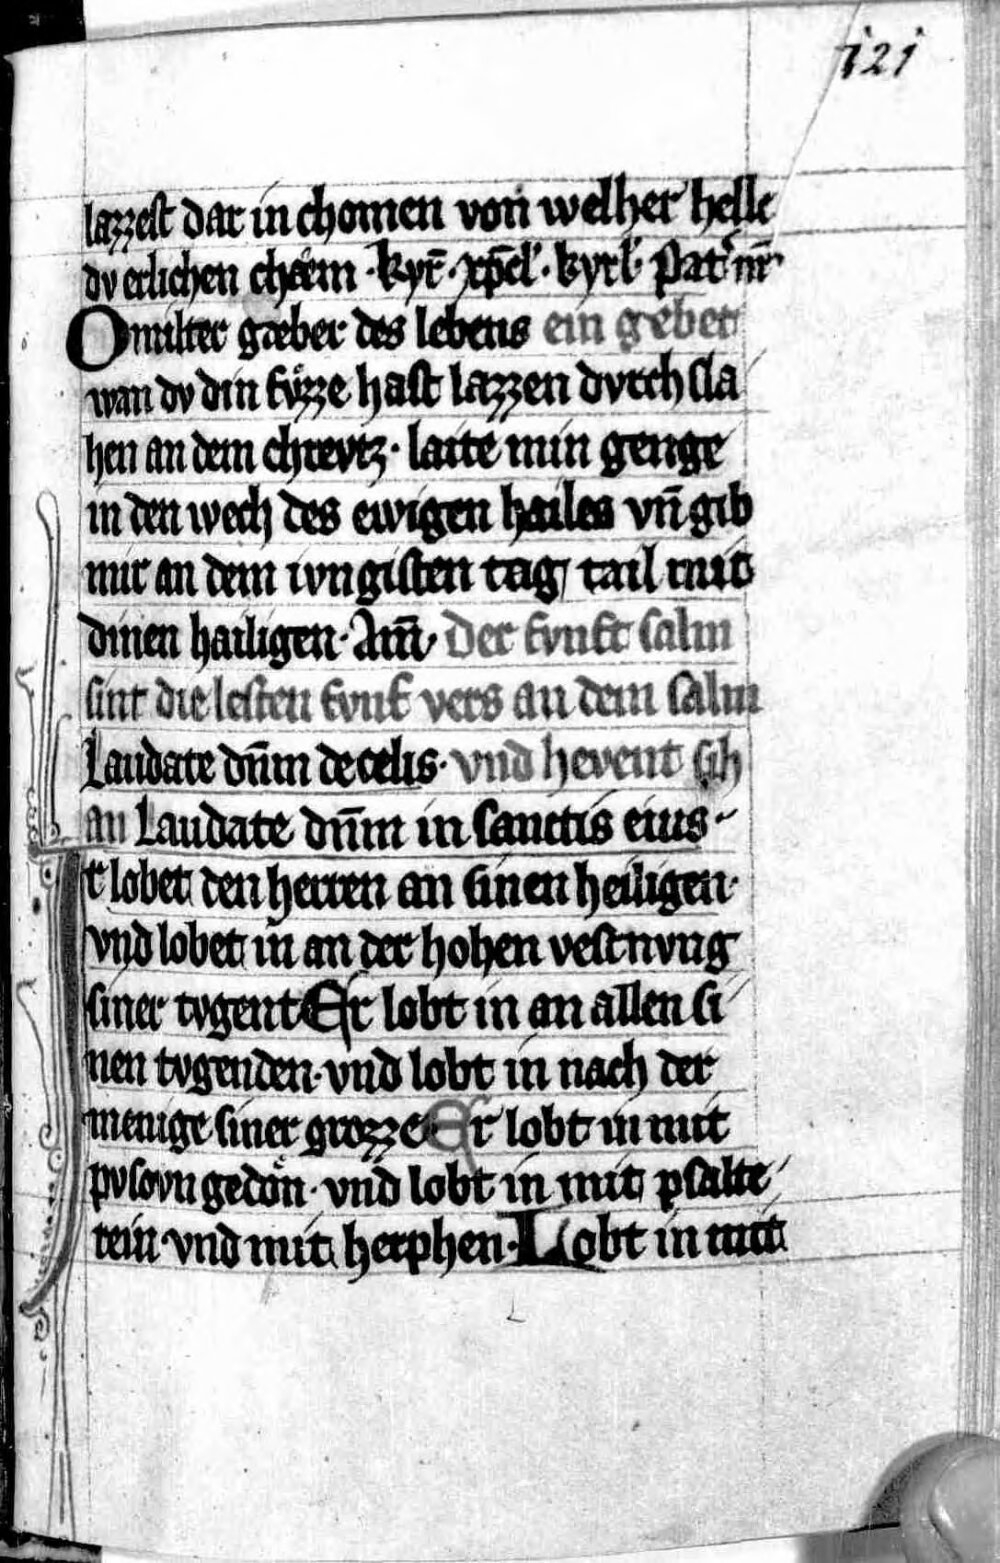 121
lazzest dar in chomen von welher helle
dv erlichen chæm · kyr̄ · xp̄el᾽ · kyrl᾽ · Pat᾽ nr̄ ·
O milter gæber des lebens ein gebet
wan dv din fvͤzze hast lazzen dvrch sla
hen an dem chrevtz · laite min genge
in den wech des ewigen hailes vn̄ gib
mir an dem ivngisten tag tail mit
dinen hailigen · Am̄ · Der fvnft salm
sint die lesten fvnf vers an dem salm
Laudate dn̄m de celis · vnd hevent sih
an Laudate dn̄m in sanctis eius ·
Ir lobet den herren an sinen heiligen ·
vnd lobet in an der hohen vestnvng
siner tvgent Er lobt in an allen si
nen tvgenden · vnd lobt in nach der
menige siner grozze Er lobt in mit
pvsovn gedoͤn · vnd lobt in mit psalte
rein vnd mit herphen · Lobt in mit